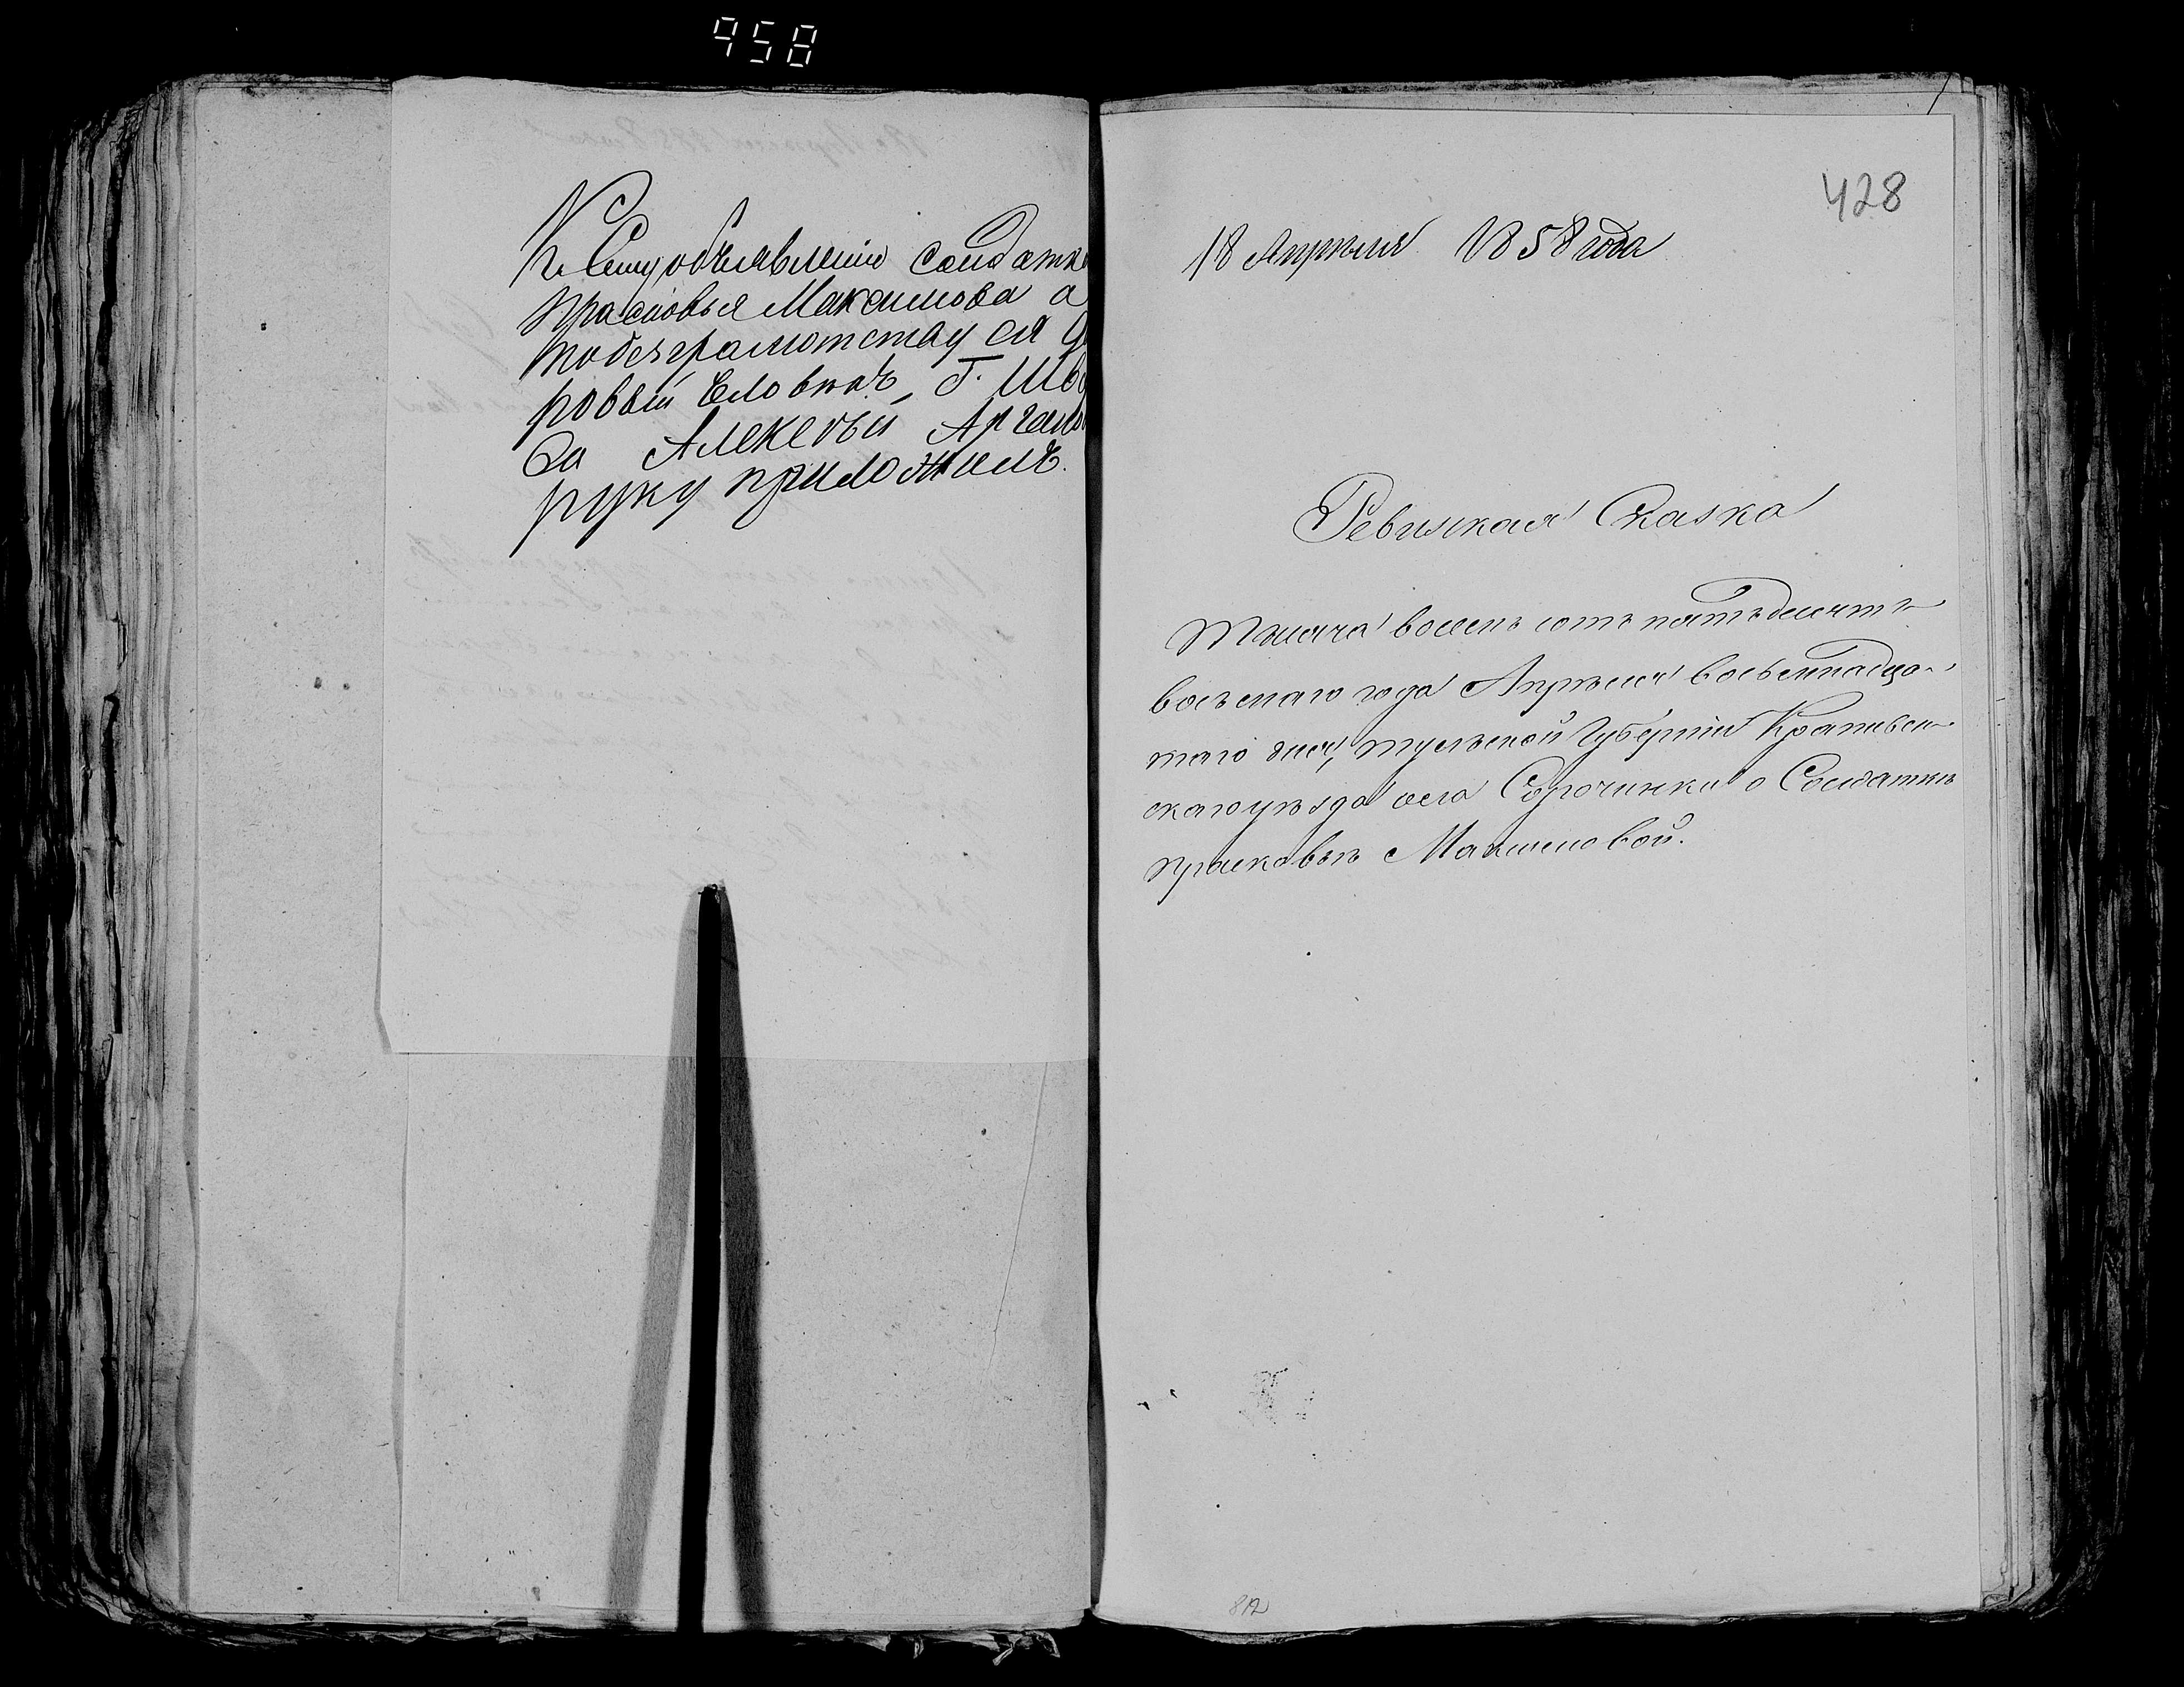 958
К Сему объявлению солдатка
прасковья Максимова а
побезграмотству ся
ровый Еловкъ, Г.
Алексъй
руку приложилъ.
428
18 Апреля 1858 года
Ревизкая Сказка
Тысяча восемь сотъ пятьдесятъ
восьмаго года Апреля восьемнадца-
таго дня, тульской Губернии Крапивен-
скаго уезда села Сорочинки о Солдатке
прасковье Максимовой.
812